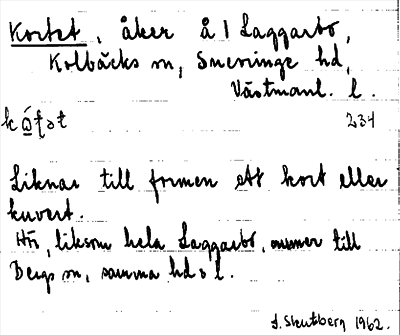 Kortet, åker å 1 Laggarbo,
Kolbäcks sn, Snevringe hd,
Västmanl. l.
234
Liknar till formen ett kort eller
kuvert.
Hör, liksom hela Laggarbo, numer till
Bergs sn, samma hd o l.
J. Skutberg 1962.